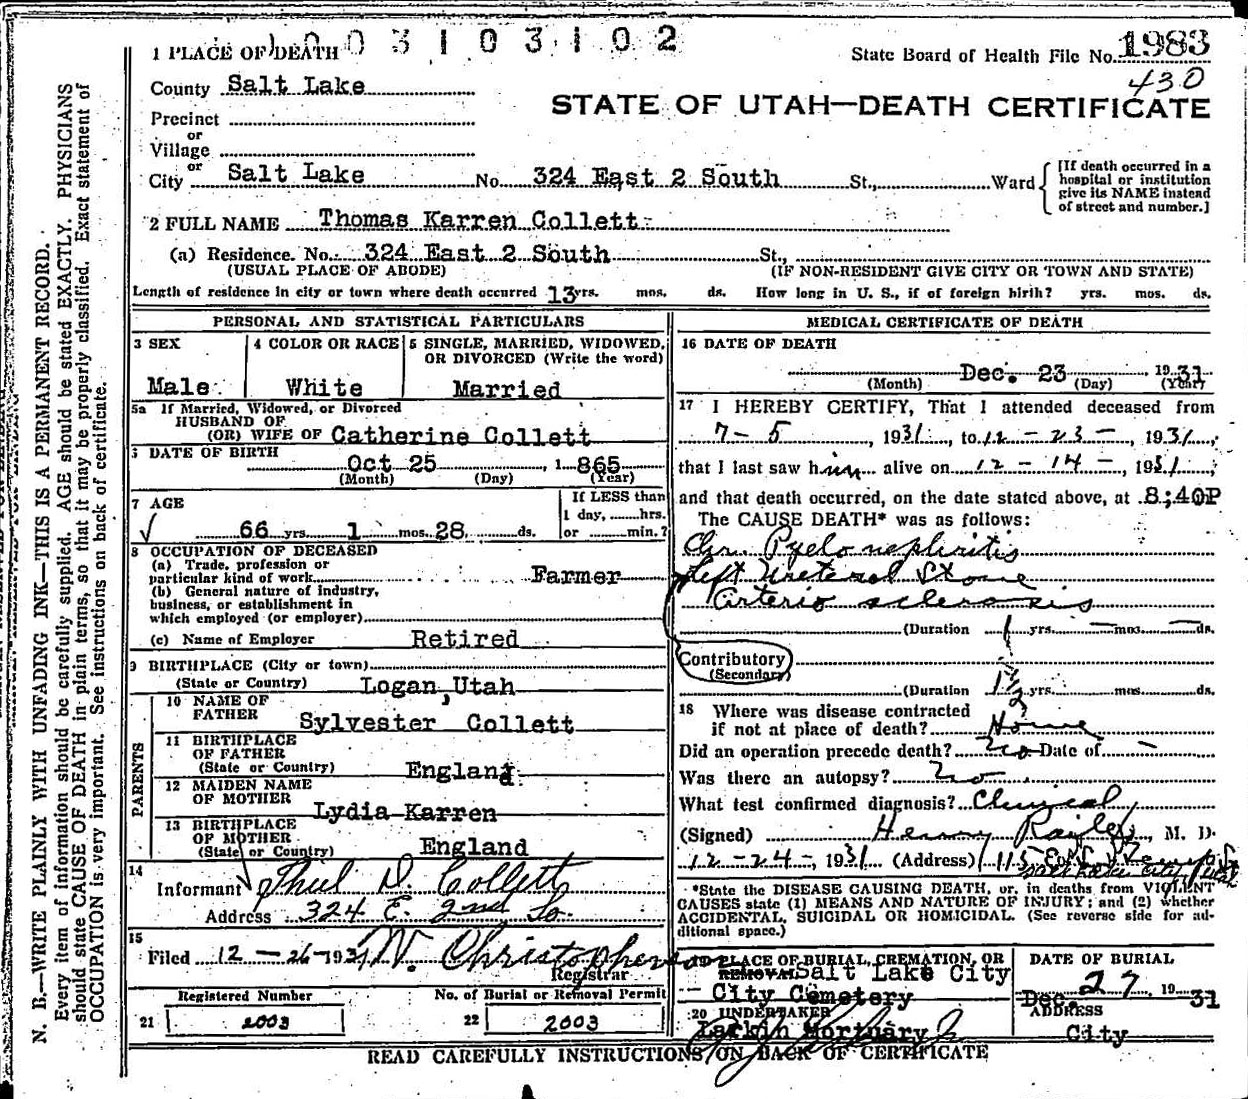 1 PLACE OF DEATH
0 0 3 1 0 3 1 0 2
State Board of Health File No. 1983
430
County Salt Lake
STATE OF UTAH—DEATH CERTIFICATE
Precinct
or
Village
or
City Salt Lake No. 324 East 2 South St., Ward
[If death occurred in a
hospital or institution
give its NAME instead
of street and number.]
2 FULL NAME Thomas Karren Collett
(a) Residence. No. 324 East 2 South St.,
(USUAL PLACE OF ABODE) (IF NON-RESIDENT GIVE CITY OR TOWN AND STATE)
Length of residence in city or town where death occurred 13 yrs. mos. ds. How long in U. S., if of foreign birth? yrs. mos. ds.
PERSONAL AND STATISTICAL PARTICULARS
3 SEX
Male
4 COLOR OR RACE
White
5 SINGLE, MARRIED, WIDOWED,
OR DIVORCED (Write the word)
Married
5a If Married, Widowed, or Divorced
HUSBAND OF
(OR) WIFE OF Catherine Collett
6 DATE OF BIRTH
Oct 25, 1865
(Month) (Day) (Year)
7 AGE
66 yrs. 1 mos. 28 ds.
If LESS than
1 day, hrs.
or min.?
8 OCCUPATION OF DECEASED
(a) Trade, profession or
particular kind of work Farmer
(b) General nature of industry,
business, or establishment in
which employed (or employer)
(c) Name of Employer Retired
9 BIRTHPLACE (City or town)
(State or Country) Logan, Utah
PARENTS
10 NAME OF
FATHER Sylvester Collett
11 BIRTHPLACE
OF FATHER
(State or Country) England
12 MAIDEN NAME
OF MOTHER Lydia Karren
13 BIRTHPLACE
OF MOTHER
(State or Country) England
14
Informant Phil D. Collett
Address 324 E. 2nd So.
15
Filed 12-26-1931 W. Christopherson
Registrar
Registered Number
21 2003
No. of Burial or Removal Permit
22 2003
MEDICAL CERTIFICATE OF DEATH
16 DATE OF DEATH
Dec. 23 1931
(Month) (Day) (Year)
17 I HEREBY CERTIFY, That I attended deceased from
7-5, 1931, to 12-23-, 1931,
that I last saw him alive on 12-14-, 1931,
and that death occurred, on the date stated above, at 8;40P
The CAUSE DEATH* was as follows:
Chr. Pyelo nephritis
Left Ureteral Stone
Arterio sclerosis
(Duration 1 yrs. — mos. — ds.
Contributory
(Secondary)
(Duration 1 1/2 yrs. mos. ds.
18 Where was disease contracted
if not at place of death? Home
Did an operation precede death? No Date of —
Was there an autopsy? No
What test confirmed diagnosis? Clinical
(Signed) Henry Raile, M. D.
12-24-, 1931 (Address) 115 E.
Salt Lake City Utah
*State the DISEASE CAUSING DEATH, or, in deaths from VIOLENT
CAUSES state (1) MEANS AND NATURE OF INJURY; and (2) whether
ACCIDENTAL, SUICIDAL OR HOMICIDAL. (See reverse side for ad-
ditional space.)
19 PLACE OF BURIAL, CREMATION, OR
REMOVAL Salt Lake City
City Cemetery
DATE OF BURIAL
Dec. 27, 1931
20 UNDERTAKER
Larkin Mortuary
ADDRESS
City
READ CAREFULLY INSTRUCTIONS ON BACK OF CERTIFICATE
N. B.—WRITE PLAINLY WITH UNFADING INK—THIS IS A PERMANENT RECORD.
Every item of information should be carefully supplied. AGE should be stated EXACTLY. PHYSICIANS
should state CAUSE OF DEATH in plain terms, so that it may be properly classified. Exact statement of
OCCUPATION is very important. See instructions on back of certificate.